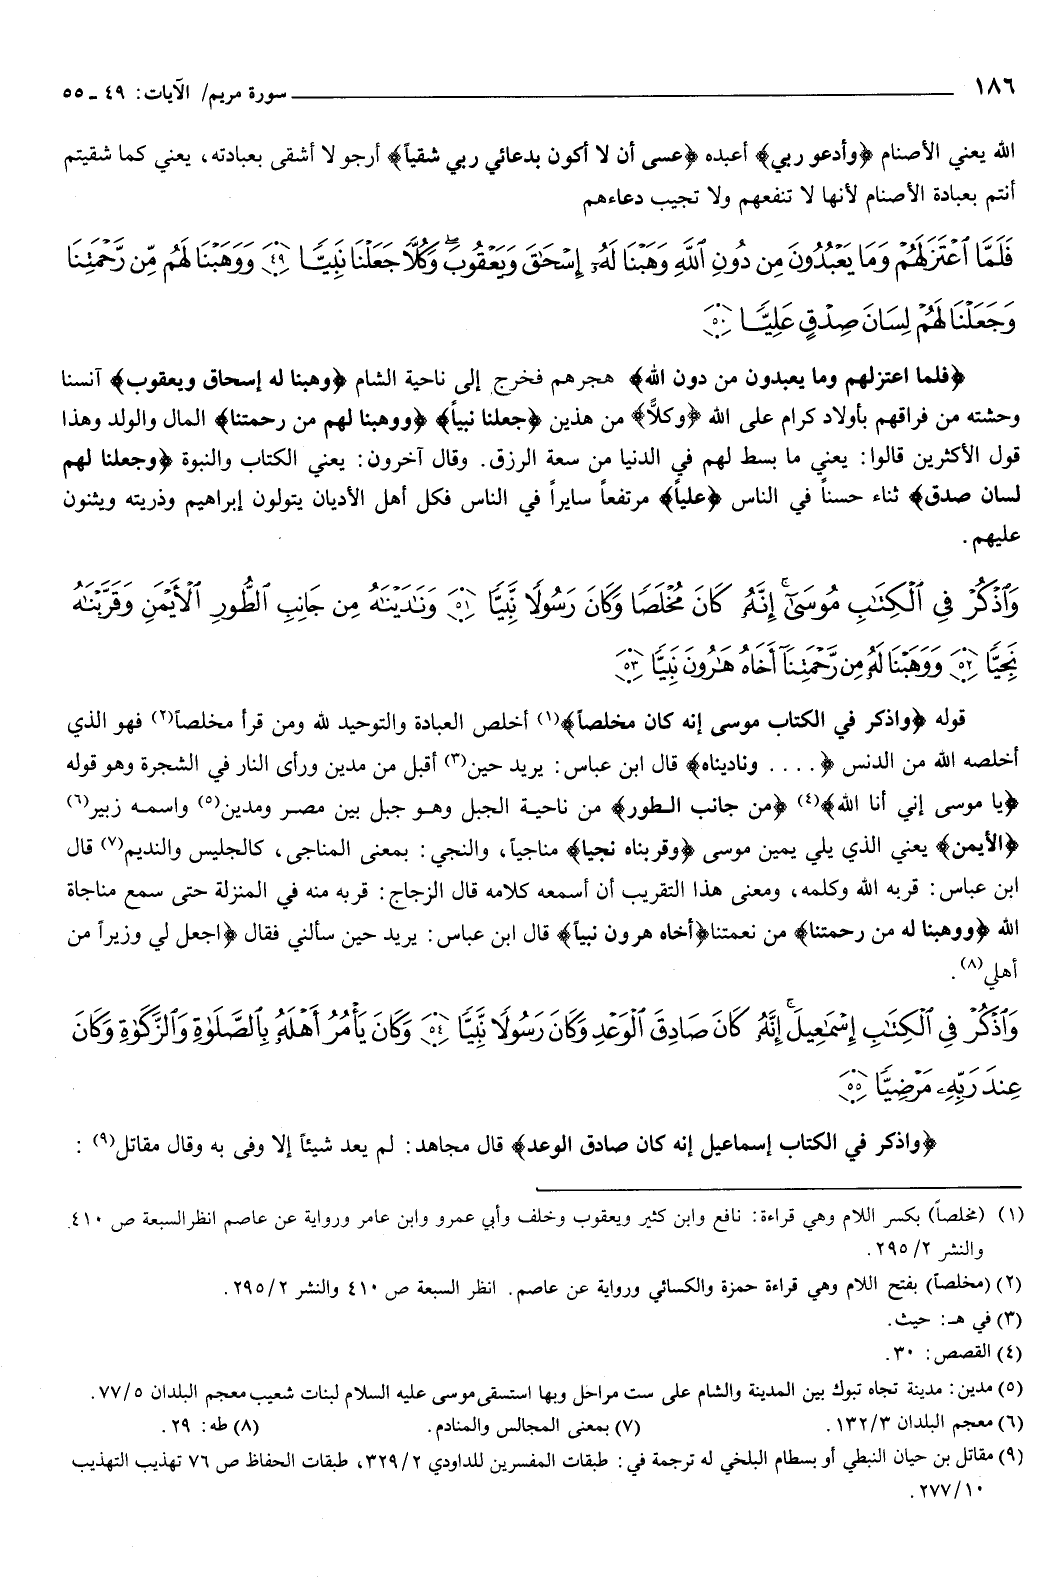 ١٨٦ سورة مريم/ الآيات: ٤٩ ـ ٥٥
الله يعني الأصنام ﴿وأدعو ربي﴾ أعبده ﴿عسى أن لا أكون بدعائي ربي شقياً﴾ أرجو لا أشقى بعبادته، يعني كما شقيتم
أنتم بعبادة الأصنام لأنها لا تنفعهم ولا تجيب دعاءهم
فَلَمَّا ٱعْتَزَلَهُمْ وَمَا يَعْبُدُونَ مِن دُونِ ٱللَّهِ وَهَبْنَا لَهُۥٓ إِسْحَٰقَ وَيَعْقُوبَ ۖ وَكُلًّا جَعَلْنَا نَبِيًّا ٤٩ وَوَهَبْنَا لَهُم مِّن رَّحْمَتِنَا
وَجَعَلْنَا لَهُمْ لِسَانَ صِدْقٍ عَلِيًّا ٥٠
﴿فلما اعتزلهم وما يعبدون من دون الله﴾ هجرهم فخرج إلى ناحية الشام ﴿وهبنا له إسحاق ويعقوب﴾ آنسنا
وحشته من فراقهم بأولاد كرام على الله ﴿وكلاًّ﴾ من هذين ﴿جعلنا نبياً﴾ ﴿ووهبنا لهم من رحمتنا﴾ المال والولد وهذا
قول الأكثرين قالوا: يعني ما بسط لهم في الدنيا من سعة الرزق. وقال آخرون: يعني الكتاب والنبوة ﴿وجعلنا لهم
لسان صدق﴾ ثناء حسناً في الناس ﴿علياً﴾ مرتفعاً سايراً في الناس فكل أهل الأديان يتولون إبراهيم وذريته ويثنون
عليهم.
وَٱذْكُرْ فِى ٱلْكِتَٰبِ مُوسَىٰٓ ۚ إِنَّهُۥ كَانَ مُخْلَصًا وَكَانَ رَسُولًا نَّبِيًّا ٥١ وَنَٰدَيْنَٰهُ مِن جَانِبِ ٱلطُّورِ ٱلْأَيْمَنِ وَقَرَّبْنَٰهُ
نَجِيًّا ٥٢ وَوَهَبْنَا لَهُۥ مِن رَّحْمَتِنَآ أَخَاهُ هَٰرُونَ نَبِيًّا ٥٣
قوله ﴿واذكر في الكتاب موسى إنه كان مخلصاً﴾(١) أخلص العبادة والتوحيد لله ومن قرأ مخلصاً(٢) فهو الذي
أخلصه الله من الدنس ﴿.... وناديناه﴾ قال ابن عباس: يريد حين(٣) أقبل من مدين ورأى النار في الشجرة وهو قوله
﴿يا موسى إني أنا الله﴾(٤) ﴿من جانب الطور﴾ من ناحية الجبل وهو جبل بين مصر ومدين(٥) واسمه زبير(٦)
﴿الأيمن﴾ يعني الذي يلي يمين موسى ﴿وقربناه نجيا﴾ مناجياً، والنجي: بمعنى المناجى، كالجليس والنديم(٧) قال
ابن عباس: قربه الله وكلمه، ومعنى هذا التقريب أن أسمعه كلامه قال الزجاج: قربه منه في المنزلة حتى سمع مناجاة
الله ﴿ووهبنا له من رحمتنا﴾ من نعمتنا﴿أخاه هرون نبياً﴾ قال ابن عباس: يريد حين سألني فقال ﴿اجعل لي وزيراً من
أهلي(٨).
وَٱذْكُرْ فِى ٱلْكِتَٰبِ إِسْمَٰعِيلَ ۚ إِنَّهُۥ كَانَ صَادِقَ ٱلْوَعْدِ وَكَانَ رَسُولًا نَّبِيًّا ٥٤ وَكَانَ يَأْمُرُ أَهْلَهُۥ بِٱلصَّلَوٰةِ وَٱلزَّكَوٰةِ وَكَانَ
عِندَ رَبِّهِۦ مَرْضِيًّا ٥٥
﴿واذكر في الكتاب إسماعيل إنه كان صادق الوعد﴾ قال مجاهد: لم يعد شيئاً إلا وفى به وقال مقاتل(٩):
(١) (مخلصاً) بكسر اللام وهي قراءة: نافع وابن كثير ويعقوب وخلف وأبي عمرو وابن عامر ورواية عن عاصم انظر السبعة ص ٤١٠.
والنشر ٢/ ٢٩٥.
(٢) (مخلصاً) بفتح اللام وهي قراءة حمزة والكسائي ورواية عن عاصم. انظر السبعة ص ٤١٠ والنشر ٢/ ٢٩٥.
(٣) في هـ: حيث.
(٤) القصص: ٣٠.
(٥) مدين: مدينة تجاه تبوك بين المدينة والشام على ست مراحل وبها استسقى موسى عليه السلام لبنات شعيب معجم البلدان ٥/ ٧٧.
(٦) معجم البلدان ٣/ ١٣٢. (٧) بمعنى المجالس والمنادم. (٨) طه: ٢٩.
(٩) مقاتل بن حيان النبطي أو بسطام البلخي له ترجمة في: طبقات المفسرين للداودي ٢/ ٣٢٩، طبقات الحفاظ ص ٧٦ تهذيب التهذيب
١٠/ ٢٧٧.